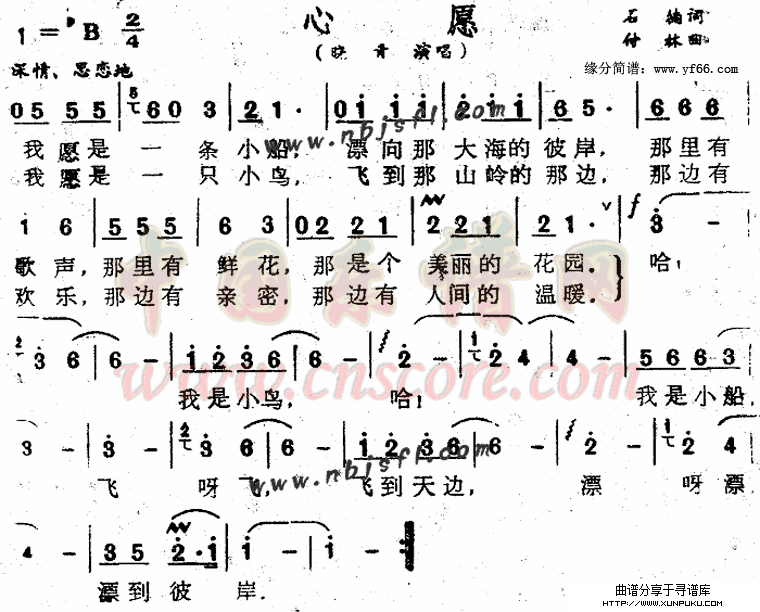 心 愿
1=♭B 2/4
(晓青演唱)
石 词
付 林 曲
缘分简谱: www.yf66.com
深情、思恋地
05 55 60 3 21· 01 11 211 65· 666
我愿是一条小船,漂向那大海的彼岸,那里有
我愿是一只小鸟,飞到那山岭的那边,那边有
www.nbjsfl.com
1 6 555 6 3 02 21 221 21· f 3 -
歌声,那里有 鲜花,那是个 美丽的 花园. 哈!
欢乐,那边有 亲密,那边有 人间的 温暖.
中国乐谱网
3 6 6 - 1236 6 - 2 - 2 4 4 - 56 63
www.cnscore.com
我是小鸟, 哈! 我是小船,
3 - 3 - 3 6 6 - 12 36 6 - 2 - 2 4
飞 呀飞, 飞到天边, 漂 呀漂
www.nbjsfl.com
4 - 35 2·1 1 - 1 -
漂到彼 岸.
曲谱分享于寻谱库
HTTP://WWW.XUNPUKU.COM